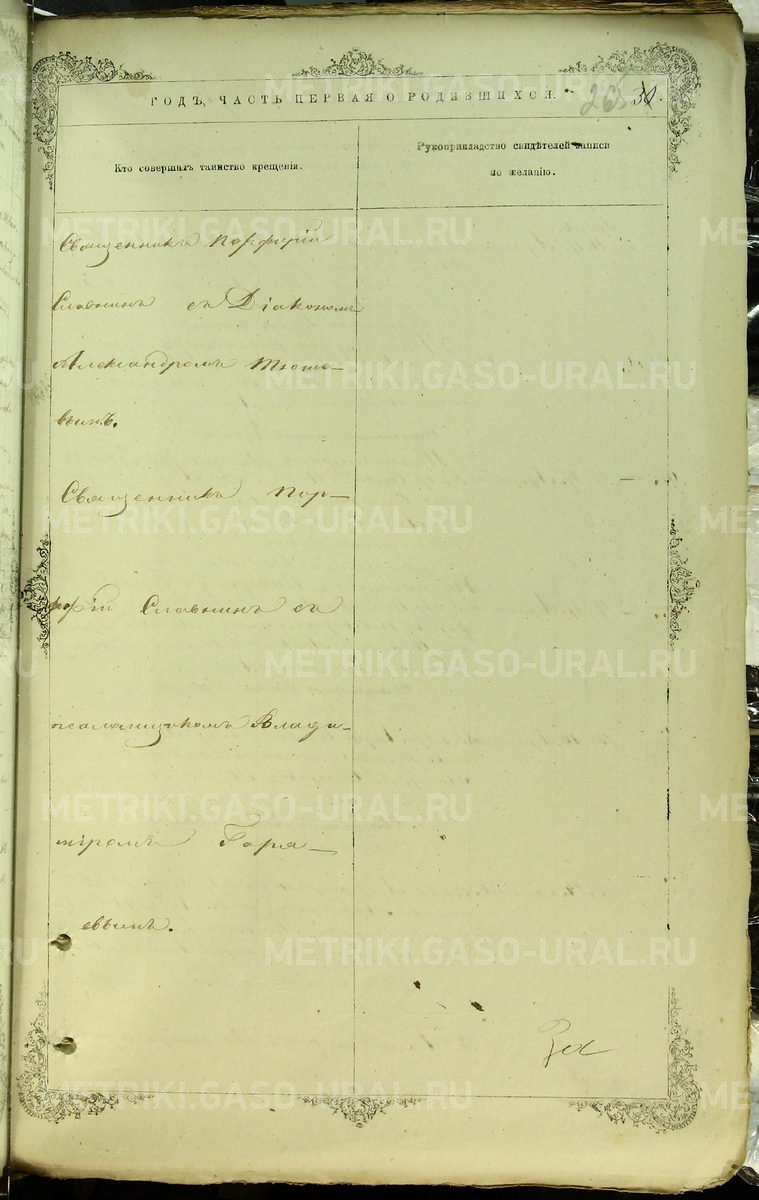 ГОДЪ, ЧАСТЬ ПЕРВАЯ О РОДИВШИХСЯ.
Кто совершалъ таинство крещенія.
Рукоприкладство свидѣтелей записи
по желанію.
Священникъ Порфирій
Славнинъ съ Діакономъ
Александромъ
вымъ.
Священникъ Пор-
фирій Славнинъ съ
псаломщикомъ Влади-
міромъ
евымъ.
METRIKI.GASO-URAL.RU